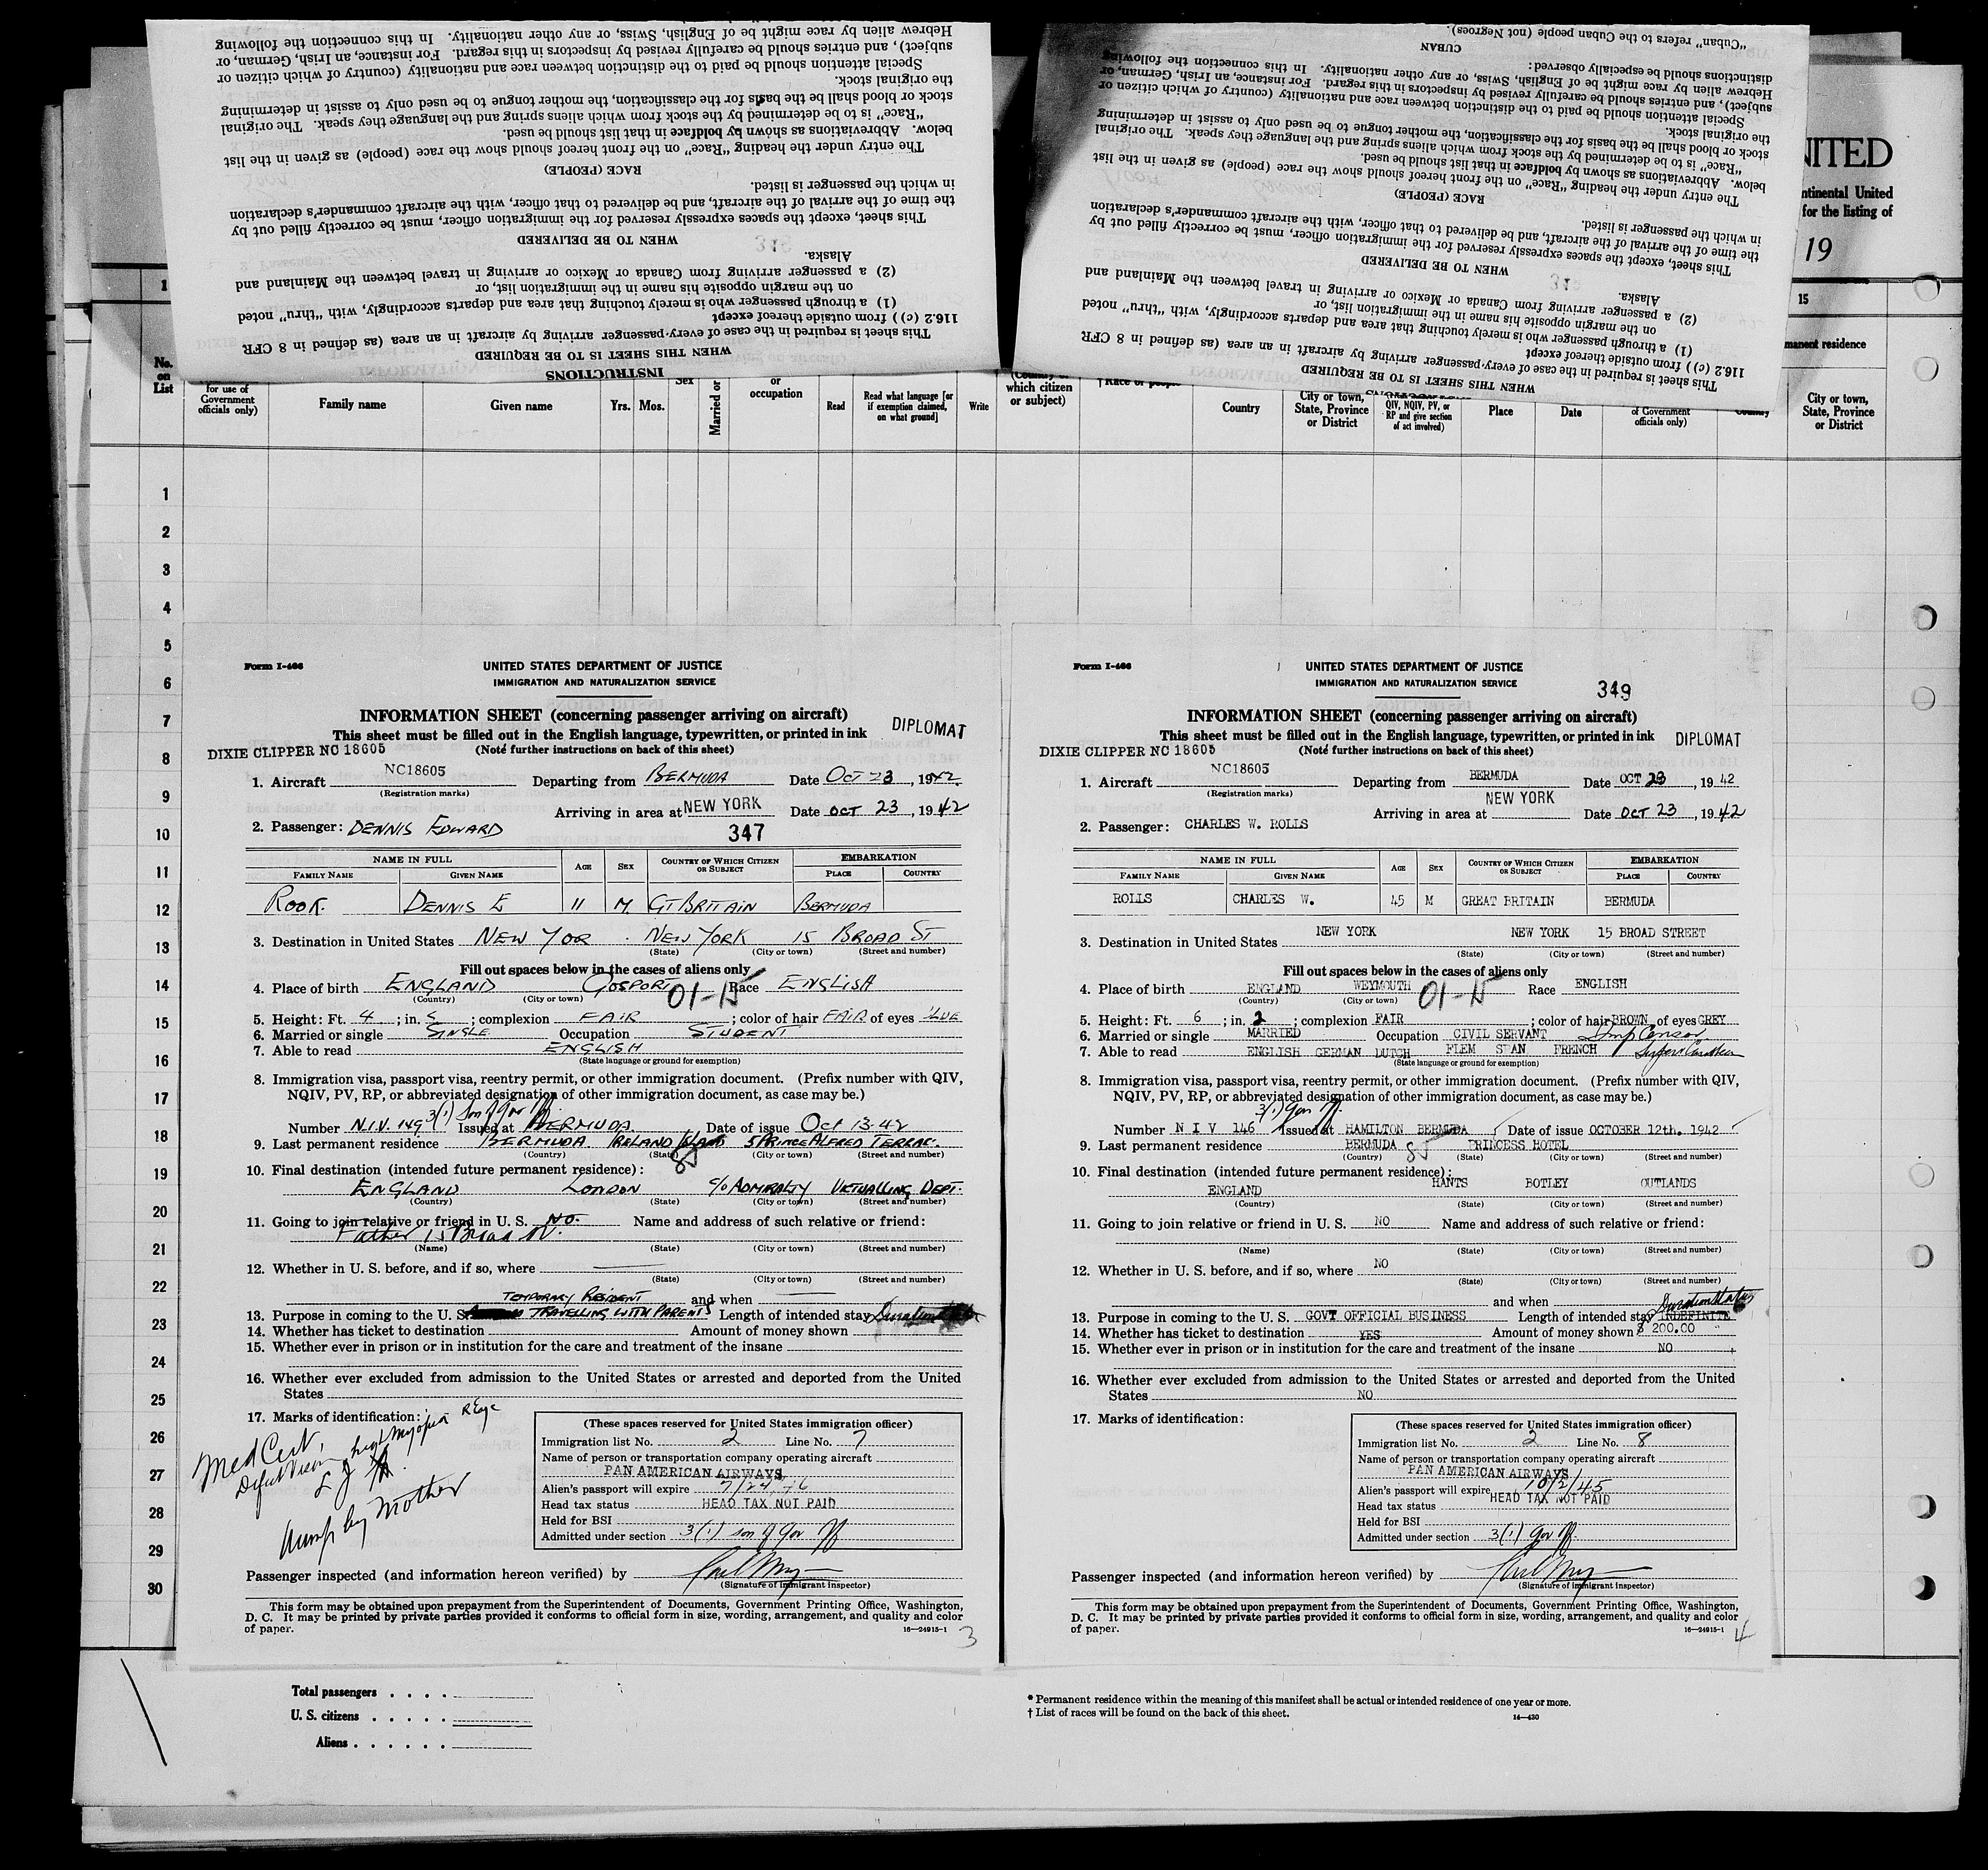 Hebrew alien by race might be of English, Swiss, or any other nationality. In this connection the following
subject), and entries should be carefully revised by inspectors in this regard. For instance, an Irish, German, or
Special attention should be paid to the distinction between race and nationality (country of which citizen or
the original stock.
stock or blood shall be the basis for the classification, the mother tongue to be used only to assist in determining
"Race" is to be determined by the stock from which aliens spring and the language they speak. The original
below. Abbreviations as shown by boldface in that list should be used.
The entry under the heading "Race" on the front hereof should show the race (people) as given in the list
RACE (PEOPLE)
in which the passenger is listed.
the time of the arrival of the aircraft, and be delivered to that officer, with the aircraft commander's declaration
This sheet, except the spaces expressly reserved for the immigration officer, must be correctly filled out by
WHEN TO BE DELIVERED
Alaska.
(2) a passenger arriving from Canada or Mexico or arriving in travel between the Mainland and
on the margin opposite his name in the immigration list, or
(1) a through passenger who is merely touching that area and departs accordingly, with "thru" noted
116.2 (c) ) from outside thereof except
This sheet is required in the case of every passenger arriving by aircraft in an area (as defined in 8 CFR
WHEN THIS SHEET IS TO BE REQUIRED
INSTRUCTIONS
"Cuban" refers to the Cuban people (not Negroes).
CUBAN
distinctions should be especially observed:
Hebrew alien by race might be of English, Swiss, or any other nationality. In this connection the following
subject), and entries should be carefully revised by inspectors in this regard. For instance, an Irish, German, or
Special attention should be paid to the distinction between race and nationality (country of which citizen or
the original stock.
stock or blood shall be the basis for the classification, the mother tongue to be used only to assist in determining
"Race" is to be determined by the stock from which aliens spring and the language they speak. The original
below. Abbreviations as shown by boldface in that list should be used.
The entry under the heading "Race" on the front hereof should show the race (people) as given in the list
RACE (PEOPLE)
in which the passenger is listed.
the time of the arrival of the aircraft, and be delivered to that officer, with the aircraft commander's declaration
This sheet, except the spaces expressly reserved for the immigration officer, must be correctly filled out by
WHEN TO BE DELIVERED
Alaska.
(2) a passenger arriving from Canada or Mexico or arriving in travel between the Mainland and
on the margin opposite his name in the immigration list, or
(1) a through passenger who is merely touching that area and departs accordingly, with "thru" noted
116.2 (c) ) from outside thereof except
This sheet is required in the case of every passenger arriving by aircraft in an area (as defined in 8 CFR
WHEN THIS SHEET IS TO BE REQUIRED
NITED
ntinental United
for the listing of
19
1
15
manent residence
No. on List
for use of Government officials only)
Family name
Given name
Yrs. Mos.
Sex
Married or
or occupation
Read
Read what language [or if exemption claimed, on what ground]
Write
which citizen or subject)
Country
City or town, State, Province or District
QIV, NQIV, PV, or RP and give section of act involved)
Place
Date
of Government officials only)
City or town, State, Province or District
1
2
3
4
5
6
7
8
9
10
11
12
13
14
15
16
17
18
19
20
21
22
23
24
25
26
27
28
29
30
Form I-466
UNITED STATES DEPARTMENT OF JUSTICE
IMMIGRATION AND NATURALIZATION SERVICE
INFORMATION SHEET (concerning passenger arriving on aircraft)
DIPLOMAT
This sheet must be filled out in the English language, typewritten, or printed in ink
DIXIE CLIPPER NC 18605 (Note further instructions on back of this sheet)
1. Aircraft NC18605 Departing from BERMUDA Date OCT 23, 1942
(Registration marks)
Arriving in area at NEW YORK Date OCT 23, 1942
2. Passenger: DENNIS EDWARD 347
NAME IN FULL AGE SEX COUNTRY OF WHICH CITIZEN OR SUBJECT EMBARKATION
FAMILY NAME GIVEN NAME PLACE COUNTRY
ROOK. DENNIS E 11 M. GT BRITAIN BERMUDA
3. Destination in United States NEW YOR . NEW YORK 15 BROAD ST
(State) (City or town) (Street and number)
Fill out spaces below in the cases of aliens only
4. Place of birth ENGLAND GOSPORT 01-15 Race ENGLISH
(Country) (City or town)
5. Height: Ft. 4; in. 5; complexion FAIR; color of hair FAIR of eyes
6. Married or single SINGLE Occupation STUDENT
7. Able to read ENGLISH
(State language or ground for exemption)
8. Immigration visa, passport visa, reentry permit, or other immigration document. (Prefix number with QIV,
NQIV, PV, RP, or abbreviated designation of other immigration document, as case may be.)
3(1) son of Gov
Number N.I.V. 149 Issued at BERMUDA. Date of issue Oct 13-42
9. Last permanent residence BERMUDA IRELAND ISLAND 5 PRINCE ALFRED TERRAC.
(Country) (State) 85 (City or town) (Street and number)
10. Final destination (intended future permanent residence):
ENGLAND LONDON c/o ADMIRALTY VICTUALLING DEPT.
(Country) (State) (City or town) (Street and number)
11. Going to join relative or friend in U. S. NO. Name and address of such relative or friend:
Father 15 Broad St.
(Name) (State) (City or town) (Street and number)
12. Whether in U. S. before, and if so, where
(State) (City or town) (Street and number)
TEMPORARY RESIDENT and when
13. Purpose in coming to the U. S. TRAVELLING WITH PARENTS Length of intended stay Duration
14. Whether has ticket to destination Amount of money shown
15. Whether ever in prison or in institution for the care and treatment of the insane
16. Whether ever excluded from admission to the United States or arrested and deported from the United
States
17. Marks of identification:
Med Cert.
Defect Vision high Myopia R Eye
by Mother
(These spaces reserved for United States immigration officer)
Immigration list No. 2 Line No. 7
Name of person or transportation company operating aircraft
PAN AMERICAN AIRWAYS
Alien's passport will expire
Head tax status HEAD TAX NOT PAID
Held for BSI
Admitted under section 3(1) son of Gov
Passenger inspected (and information hereon verified) by
(Signature of immigrant inspector)
This form may be obtained upon prepayment from the Superintendent of Documents, Government Printing Office, Washington,
D. C. It may be printed by private parties provided it conforms to official form in size, wording, arrangement, and quality and color
of paper.
16—24915-1
3
Form I-466
UNITED STATES DEPARTMENT OF JUSTICE
IMMIGRATION AND NATURALIZATION SERVICE
349
INFORMATION SHEET (concerning passenger arriving on aircraft)
This sheet must be filled out in the English language, typewritten, or printed in ink DIPLOMAT
DIXIE CLIPPER NC 18605 (Note further instructions on back of this sheet)
1. Aircraft NC18605 Departing from BERMUDA Date OCT 23, 1942
(Registration marks)
Arriving in area at NEW YORK Date OCT 23, 1942
2. Passenger: CHARLES W. ROLLS
NAME IN FULL AGE SEX COUNTRY OF WHICH CITIZEN OR SUBJECT EMBARKATION
FAMILY NAME GIVEN NAME PLACE COUNTRY
ROLLS CHARLES W. 45 M GREAT BRITAIN BERMUDA
3. Destination in United States NEW YORK NEW YORK 15 BROAD STREET
(State) (City or town) (Street and number)
Fill out spaces below in the cases of aliens only
4. Place of birth ENGLAND WEYMOUTH 01-15 Race ENGLISH
(Country) (City or town)
5. Height: Ft. 6; in. 2; complexion FAIR; color of hair BROWN of eyes GREY
6. Married or single MARRIED Occupation CIVIL SERVANT Imp Censor
7. Able to read ENGLISH GERMAN DUTCH FLEM SPAN FRENCH
(State language or ground for exemption)
8. Immigration visa, passport visa, reentry permit, or other immigration document. (Prefix number with QIV,
NQIV, PV, RP, or abbreviated designation of other immigration document, as case may be.)
3(1) Gov
Number N I V 146 Issued at HAMILTON BERMUDA Date of issue OCTOBER 12th. 1942
9. Last permanent residence BERMUDA PRINCESS HOTEL
(Country) 85 (State) (City or town) (Street and number)
10. Final destination (intended future permanent residence):
ENGLAND HANTS BOTLEY OUTLANDS
(Country) (State) (City or town) (Street and number)
11. Going to join relative or friend in U. S. NO Name and address of such relative or friend:
(Name) (State) (City or town) (Street and number)
12. Whether in U. S. before, and if so, where NO
(State) (City or town) (Street and number)
and when Duration Status
13. Purpose in coming to the U. S. GOVT OFFICIAL BUSINESS Length of intended stay INDEFINITE
14. Whether has ticket to destination YES Amount of money shown $ 200.00
15. Whether ever in prison or in institution for the care and treatment of the insane NO
16. Whether ever excluded from admission to the United States or arrested and deported from the United
States NO
17. Marks of identification:
(These spaces reserved for United States immigration officer)
Immigration list No. 2 Line No. 8
Name of person or transportation company operating aircraft
PAN AMERICAN AIRWAYS
Alien's passport will expire 10/2/45
Head tax status HEAD TAX NOT PAID
Held for BSI
Admitted under section 3(1) Gov
Passenger inspected (and information hereon verified) by
(Signature of immigrant inspector)
This form may be obtained upon prepayment from the Superintendent of Documents, Government Printing Office, Washington,
D. C. It may be printed by private parties provided it conforms to official form in size, wording, arrangement, and quality and color
of paper.
16—24915-1
4
Total passengers . . . .
U. S. citizens . . . . .
Aliens . . . . . .
* Permanent residence within the meaning of this manifest shall be actual or intended residence of one year or more.
† List of races will be found on the back of this sheet.
14—430